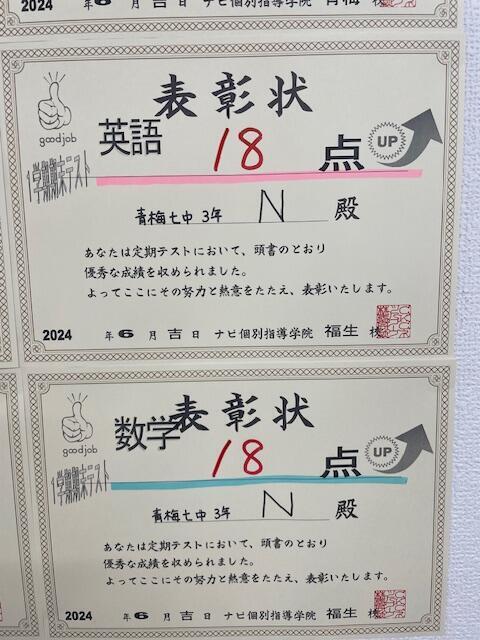 2024 年 6 月 吉 日 ナビ個別指導学院 青梅 校
表彰状
goodjob
英語 18 点 UP
1学期期末テスト
青梅七中 3年 N 殿
あなたは定期テストにおいて、頭書のとおり
優秀な成績を収められました。
よってここにその努力と熱意をたたえ、表彰いたします。
2024 年 6 月 吉 日 ナビ個別指導学院 福生 校
表彰状
goodjob
数学 18 点 UP
1学期期末テスト
青梅七中 3年 N 殿
あなたは定期テストにおいて、頭書のとおり
優秀な成績を収められました。
よってここにその努力と熱意をたたえ、表彰いたします。
2024 年 6 月 吉 日 ナビ個別指導学院 福生 校